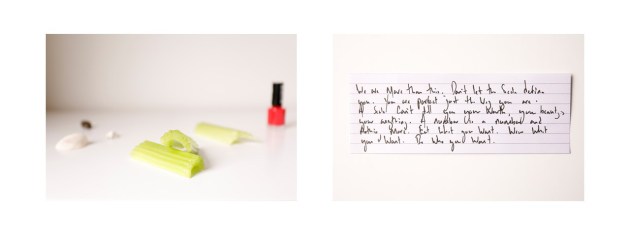 We are More than this. Don't let the Scale define
you. You are perfect just the way you are.
A Scale Can't tell you your Worth, your beauty,
your anything. A number is a number and
nothing More. Eat what you want. Wear what
you want. Be who you want.